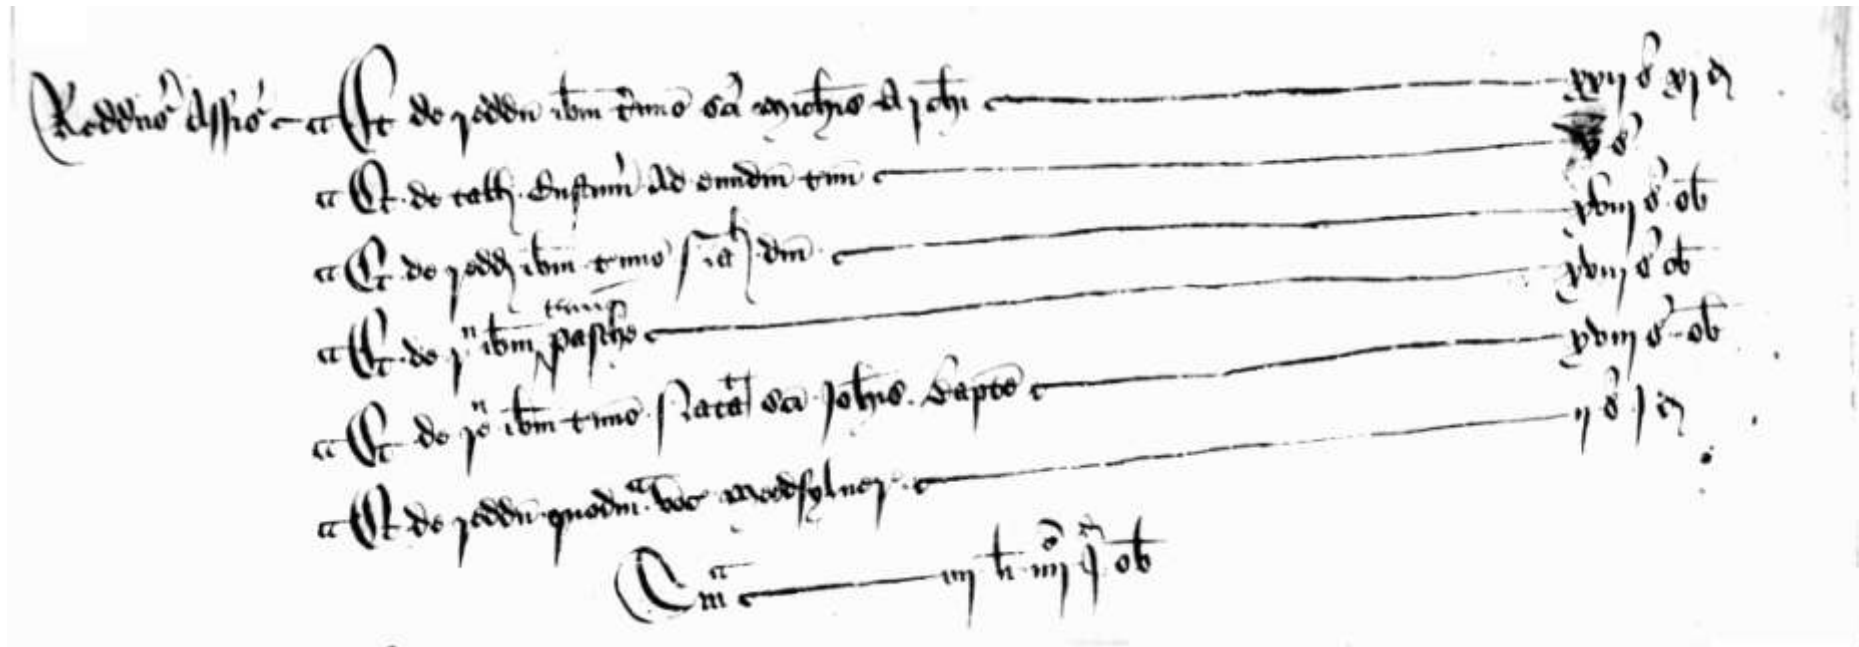 Reddit' Assis' Et de reddit ibm t'mino sci Mich'is Arch'i xxij s' xj d
Et de tall' Custum' ad eundm t'm v s'
Et de redd' ibm t'mino Natal' dni xviij s' ob
Et de r' ibm t'mino Pasche xviij s' ob
Et de re' ibm t'mino Natal' sci Joh'is Bapt'e xviij s' ob
Et de reddit quodm voc' Medsylver ij s' j d
Sma iiij li iiij s j d ob